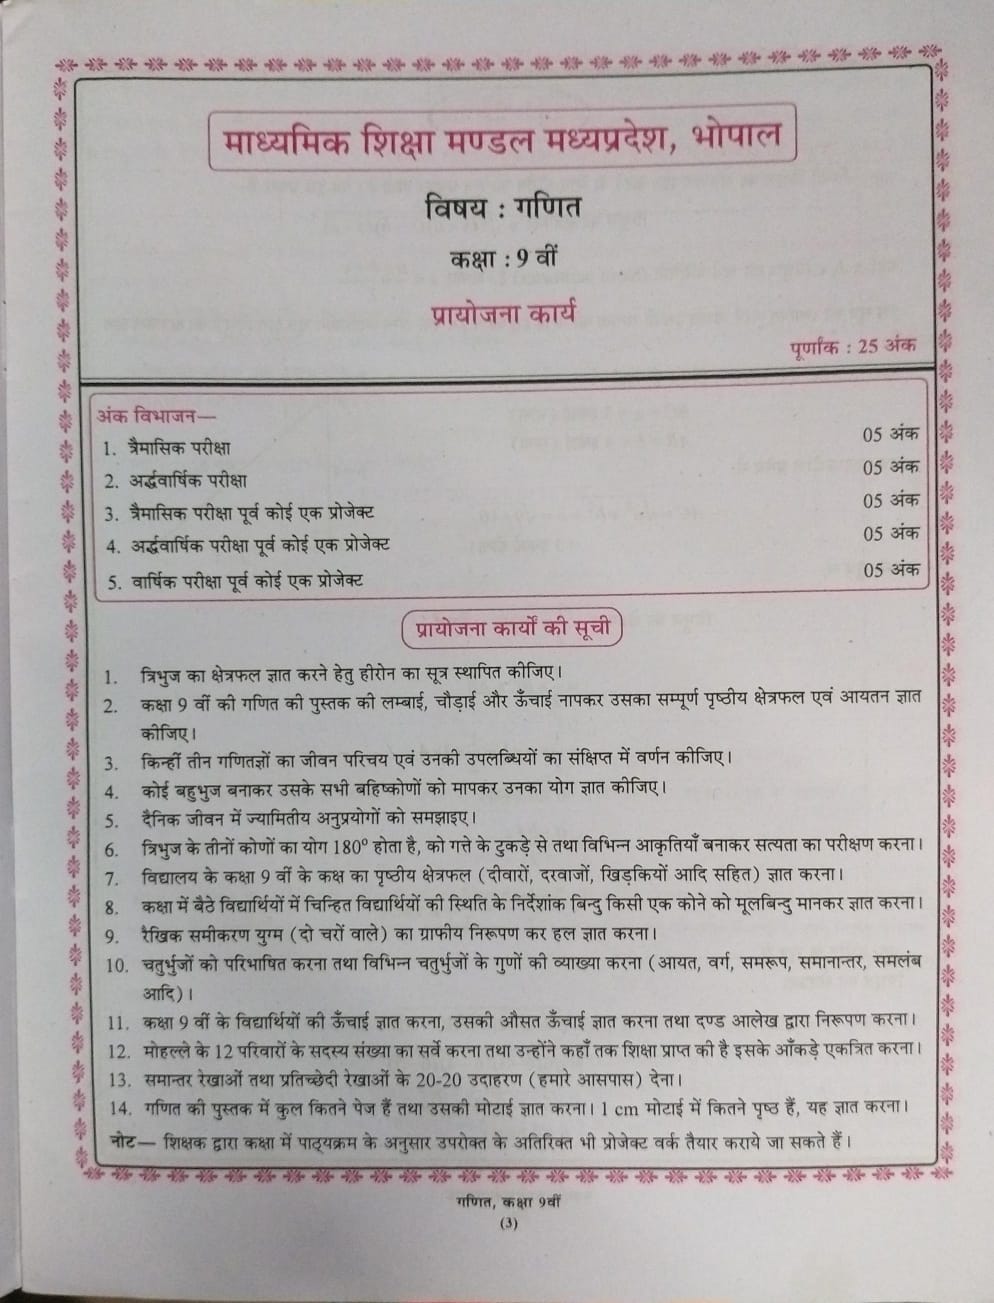 माध्यमिक शिक्षा मण्डल मध्यप्रदेश, भोपाल
विषय : गणित
कक्षा : 9 वीं
प्रायोजना कार्य
पूर्णांक : 25 अंक
अंक विभाजन—
1. त्रैमासिक परीक्षा 05 अंक
2. अर्द्धवार्षिक परीक्षा 05 अंक
3. त्रैमासिक परीक्षा पूर्व कोई एक प्रोजेक्ट 05 अंक
4. अर्द्धवार्षिक परीक्षा पूर्व कोई एक प्रोजेक्ट 05 अंक
5. वार्षिक परीक्षा पूर्व कोई एक प्रोजेक्ट 05 अंक
प्रायोजना कार्यों की सूची
1. त्रिभुज का क्षेत्रफल ज्ञात करने हेतु हीरोन का सूत्र स्थापित कीजिए।
2. कक्षा 9 वीं की गणित की पुस्तक की लम्बाई, चौड़ाई और ऊँचाई नापकर उसका सम्पूर्ण पृष्ठीय क्षेत्रफल एवं आयतन ज्ञात
कीजिए।
3. किन्हीं तीन गणितज्ञों का जीवन परिचय एवं उनकी उपलब्धियों का संक्षिप्त में वर्णन कीजिए।
4. कोई बहुभुज बनाकर उसके सभी बहिष्कोणों को मापकर उनका योग ज्ञात कीजिए।
5. दैनिक जीवन में ज्यामितीय अनुप्रयोगों को समझाइए।
6. त्रिभुज के तीनों कोणों का योग 180° होता है, को गत्ते के टुकड़े से तथा विभिन्न आकृतियाँ बनाकर सत्यता का परीक्षण करना।
7. विद्यालय के कक्षा 9 वीं के कक्ष का पृष्ठीय क्षेत्रफल (दीवारों, दरवाजों, खिड़कियों आदि सहित) ज्ञात करना।
8. कक्षा में बैठे विद्यार्थियों में चिन्हित विद्यार्थियों की स्थिति के निर्देशांक बिन्दु किसी एक कोने को मूलबिन्दु मानकर ज्ञात करना।
9. रैखिक समीकरण युग्म (दो चरों वाले) का ग्राफीय निरूपण कर हल ज्ञात करना।
10. चतुर्भुजों को परिभाषित करना तथा विभिन्न चतुर्भुजों के गुणों की व्याख्या करना (आयत, वर्ग, समरूप, समानान्तर, समलंब
आदि)।
11. कक्षा 9 वीं के विद्यार्थियों की ऊँचाई ज्ञात करना, उसकी औसत ऊँचाई ज्ञात करना तथा दण्ड आलेख द्वारा निरूपण करना।
12. मोहल्ले के 12 परिवारों के सदस्य संख्या का सर्वे करना तथा उन्होंने कहाँ तक शिक्षा प्राप्त की है इसके आँकड़े एकत्रित करना।
13. समान्तर रेखाओं तथा प्रतिच्छेदी रेखाओं के 20-20 उदाहरण (हमारे आसपास) देना।
14. गणित की पुस्तक में कुल कितने पेज हैं तथा उसकी मोटाई ज्ञात करना। 1 cm मोटाई में कितने पृष्ठ हैं, यह ज्ञात करना।
नोट— शिक्षक द्वारा कक्षा में पाठ्यक्रम के अनुसार उपरोक्त के अतिरिक्त भी प्रोजेक्ट वर्क तैयार कराये जा सकते हैं।
गणित, कक्षा 9वीं
(3)